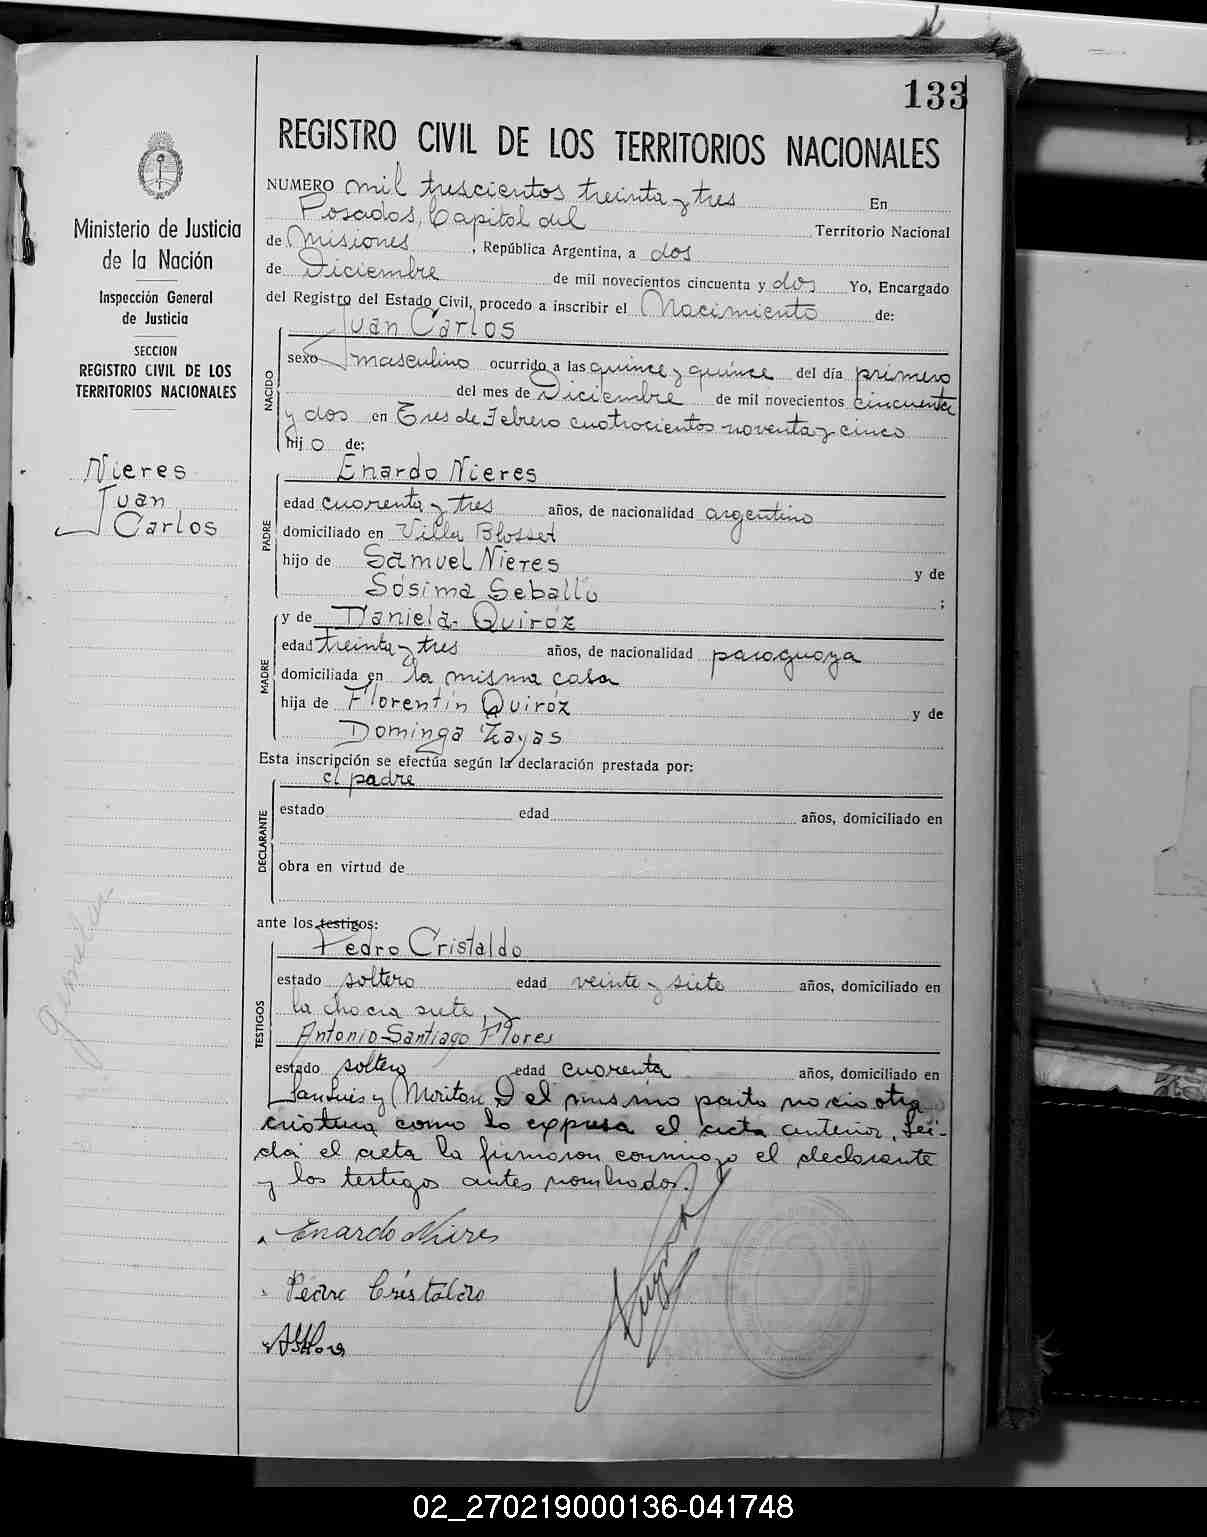 133
REGISTRO CIVIL DE LOS TERRITORIOS NACIONALES
Ministerio de Justicia
de la Nación
Inspección General
de Justicia
SECCION
REGISTRO CIVIL DE LOS
TERRITORIOS NACIONALES
Nieres
Juan
Carlos
NUMERO mil trescientos treinta y tres En
Posadas, Capital del Territorio Nacional
de Misiones, República Argentina, a dos
de Diciembre de mil novecientos cincuenta y dos Yo, Encargado
del Registro del Estado Civil, procedo a inscribir el Nacimiento de:
Juan Carlos
NACIDO
sexo masculino ocurrido a las quince y quince del día primero
del mes de Diciembre de mil novecientos cincuenta
y dos en Tres de Febrero cuatrocientos noventa y cinco
hijo de:
Enardo Nieres
PADRE
edad cuarenta y tres años, de nacionalidad argentino
domiciliado en Villa Blosset
hijo de Samuel Nieres y de
Sósima Seballo ;
y de Daniela Quiróz
MADRE
edad treinta y tres años, de nacionalidad paraguaya
domiciliada en la misma casa
hija de Florentín Quiróz y de
Dominga Zayas
Esta inscripción se efectúa según la declaración prestada por:
el padre
DECLARANTE
estado edad años, domiciliado en
obra en virtud de
ante los testigos:
Pedro Cristaldo
TESTIGOS
estado soltero edad veinte y siete años, domiciliado en
la chacra siete, y
Antonio Santiago Flores
estado soltero edad cuarenta años, domiciliado en
San Luis y el mismo parto nacio otra
criatura como lo expresa el acta anterior. Lei-
da el acta la firmaron conmigo el declarante
y los testigos antes nombrados.
Enardo Nieres
Pedro Cristaldo
gemelar
02_270219000136-041748